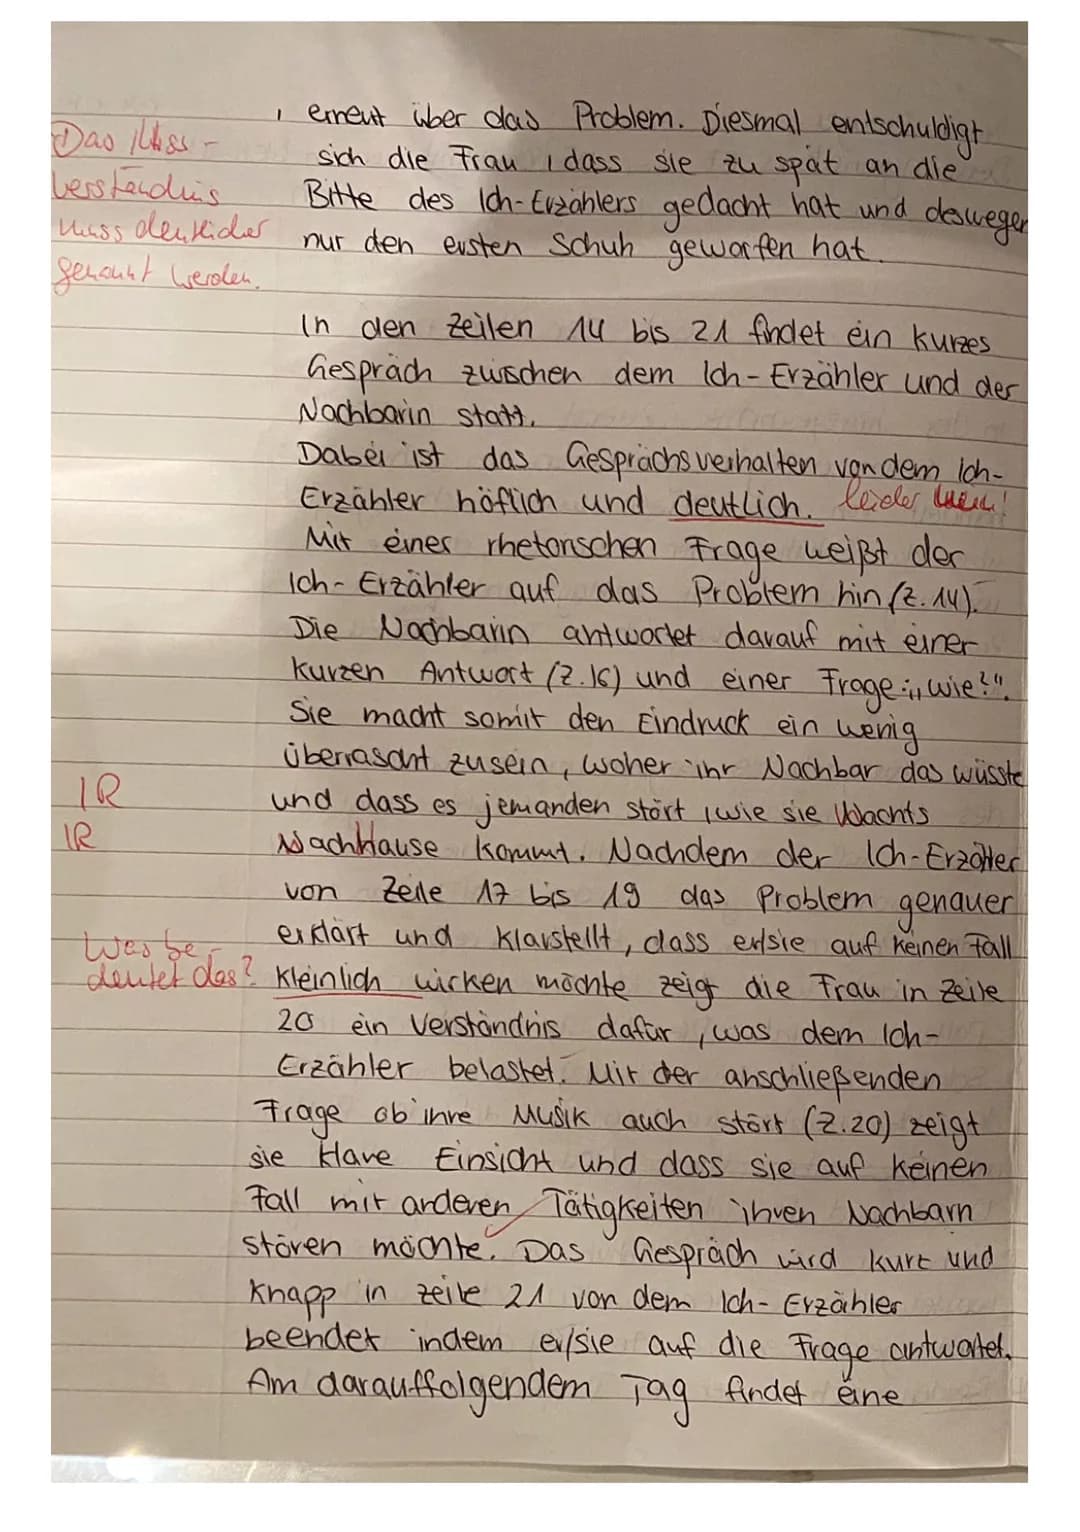 erneut über das Problem. Diesmal entschuldigt
Das Miss-
sich die Frau, dass sie zu spät an die
verständnis
Bitte des Ich-Erzählers gedacht hat und deswegen
muss deutlicher
nur den ersten Schuh geworfen hat.
genannt werden.
In den Zeilen 14 bis 21 findet ein kurzes
Gespräch zwischen dem Ich-Erzähler und der
Nachbarin statt.
Dabei ist das Gesprächsverhalten von dem Ich-
Erzähler höflich und deutlich. leider nein!
Mit eines rhetorischen Frage weißt der
Ich-Erzähler auf das Problem hin (Z. 14).
Die Nachbarin antwortet darauf mit einer
kurzen Antwort (Z. 16) und einer Frage: „wie?".
Sie macht somit den Eindruck ein wenig
überrascht zusein, woher ihr Nachbar das wüsste
IR und dass es jemanden stört, wie sie Nachts
IR NachHause kommt. Nachdem der Ich-Erzähler
von Zeile 17 bis 19 das Problem genauer
erklärt und klarstellt, dass er/sie auf keinen Fall
Was be-
deutet das? kleinlich wirken möchte zeigt die Frau in Zeile
20 ein Verständnis dafür, was dem Ich-
Erzähler belastet. Mit der anschließenden
Frage ob ihre Musik auch stört (Z. 20) zeigt
sie klare Einsicht und dass sie auf keinen
Fall mit anderen Tätigkeiten ihren Nachbarn
stören möchte. Das Gespräch wird kurz und
knapp in Zeile 21 von dem Ich-Erzähler
beendet indem er/sie auf die Frage antwortet.
Am darauffolgendem Tag findet eine